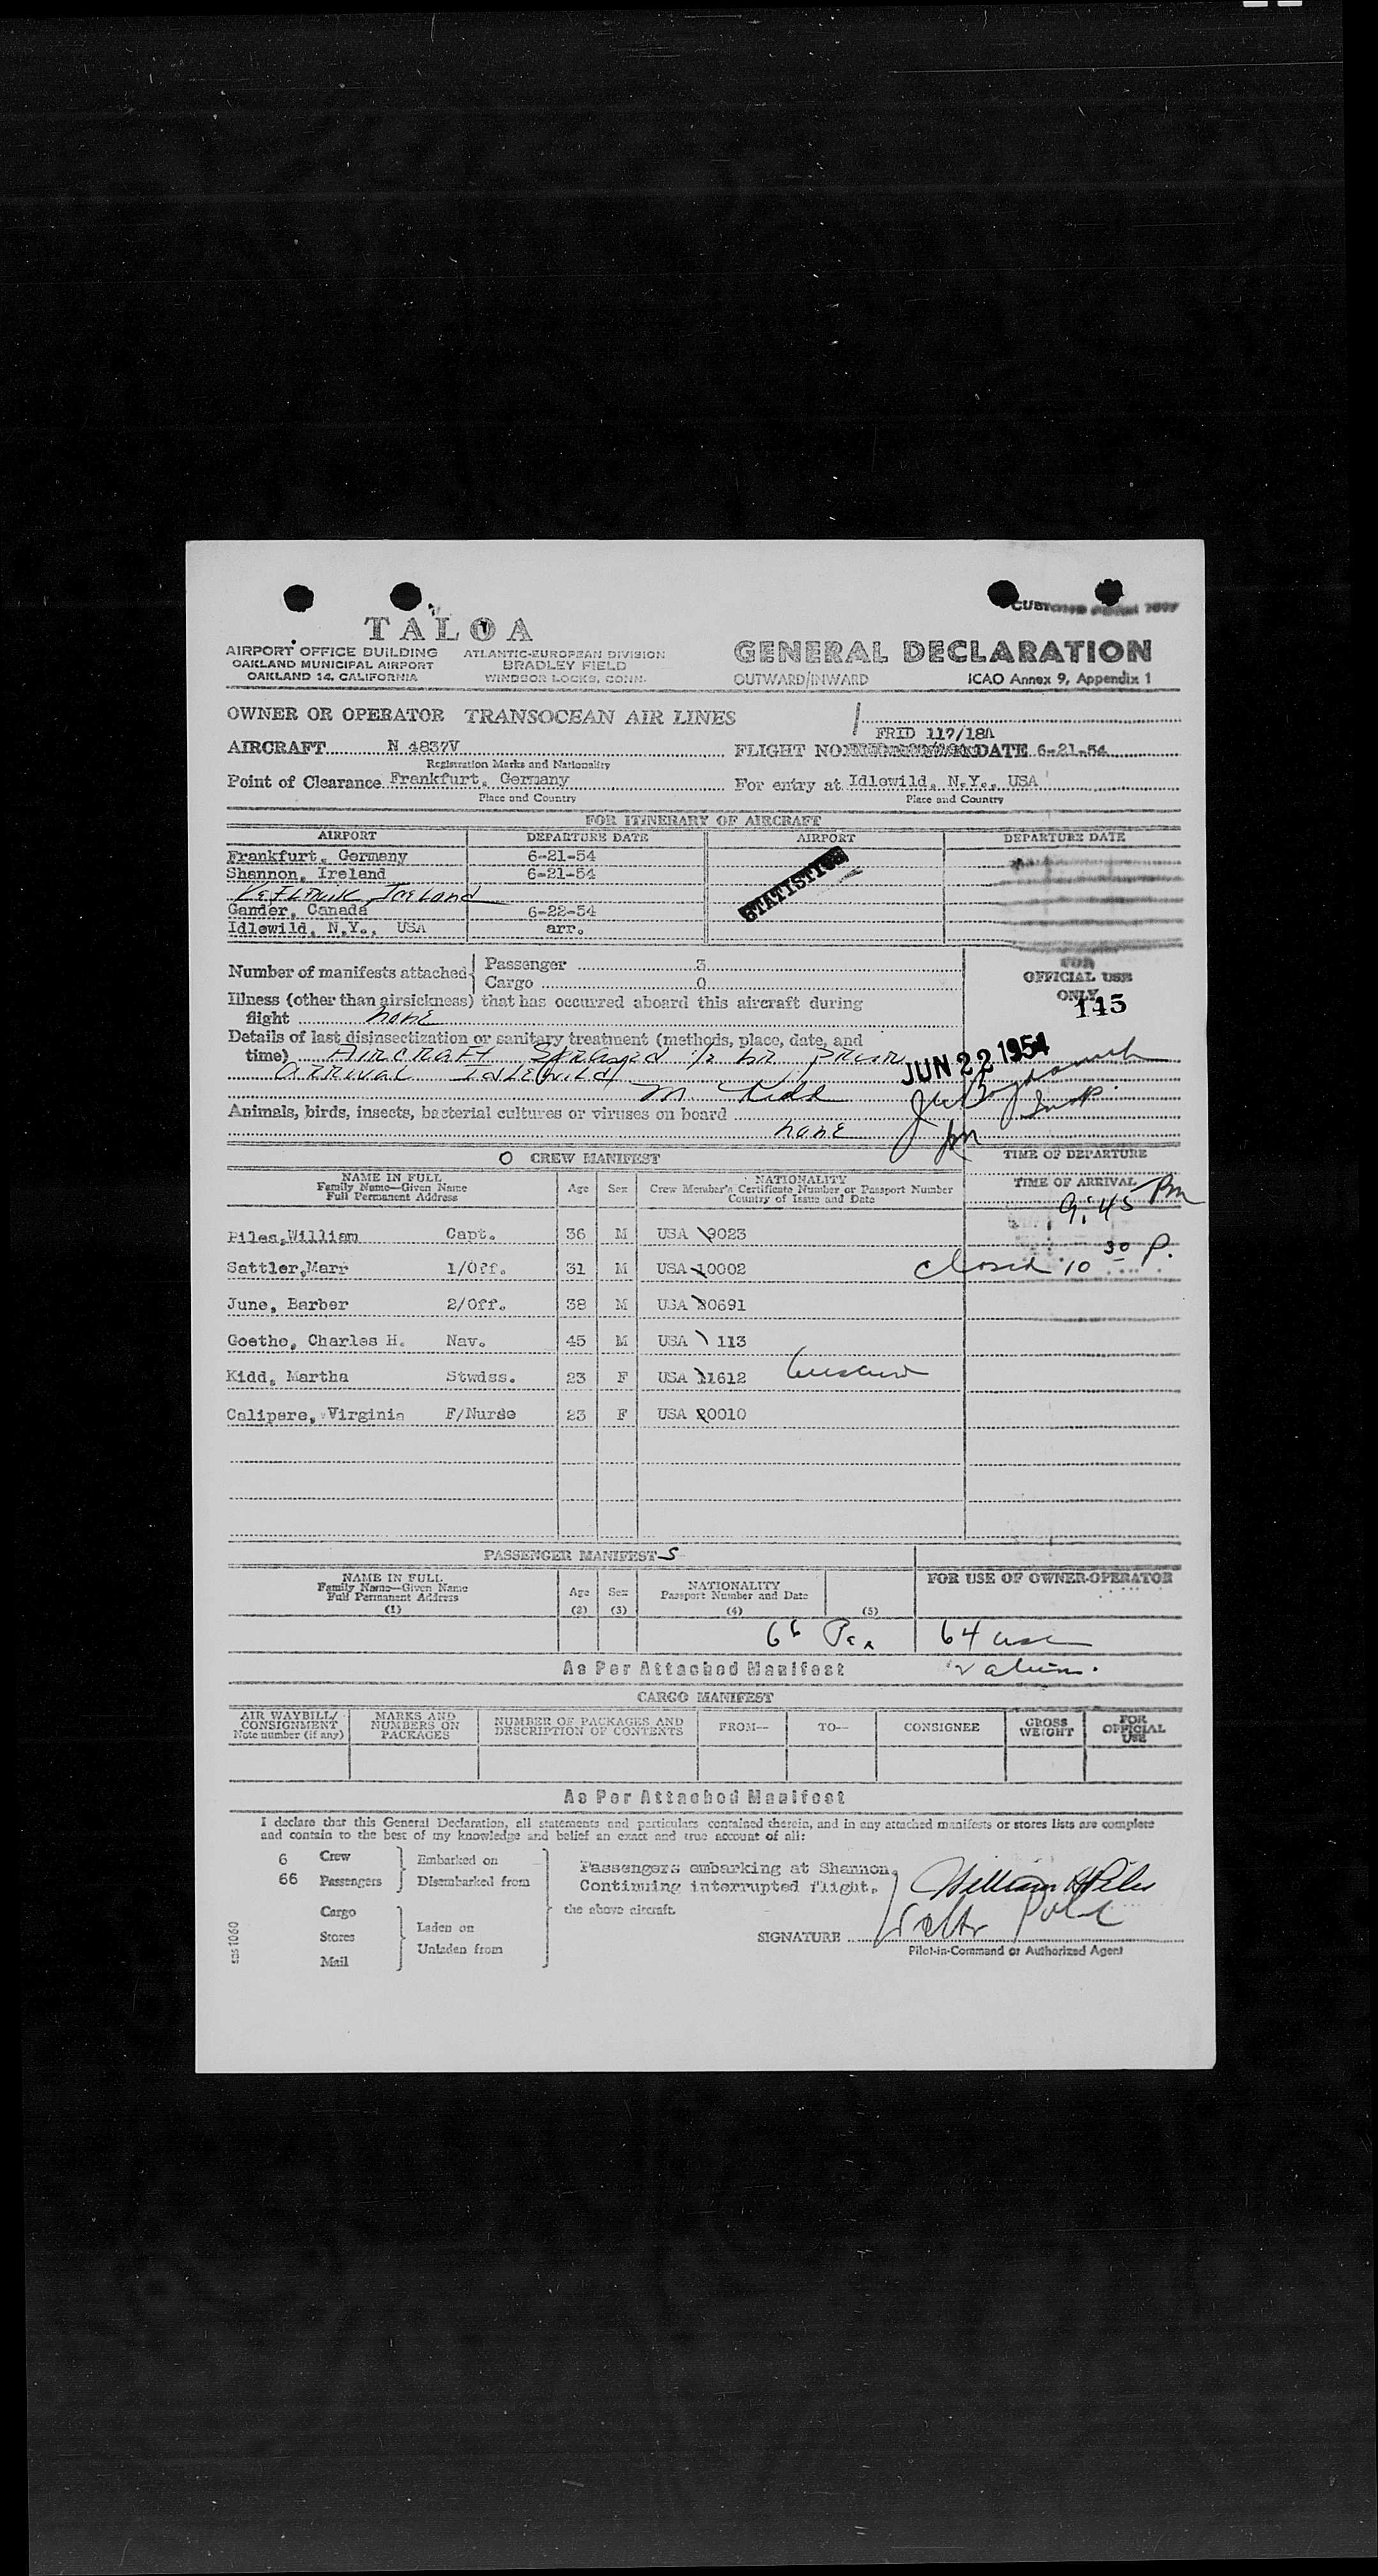 TALOA
AIRPORT OFFICE BUILDING
OAKLAND MUNICIPAL AIRPORT
OAKLAND 14, CALIFORNIA
ATLANTIC-EUROPEAN DIVISION
BRADLEY FIELD
WINDSOR LOCKS, CONN.
GENERAL DECLARATION
OUTWARD/INWARD ICAO Annex 9, Appendix 1
OWNER OR OPERATOR TRANSOCEAN AIR LINES
FRID 117/18A
AIRCRAFT N 4837V FLIGHT NO DATE 6-21-54
Registration Marks and Nationality
Point of Clearance Frankfurt, Germany For entry at Idlewild, N.Y., USA
Place and Country Place and Country
FOR ITINERARY OF AIRCRAFT
AIRPORT DEPARTURE DATE AIRPORT DEPARTURE DATE
Frankfurt, Germany 6-21-54
Shannon, Ireland 6-21-54
STATISTICS
Keflavik Iceland
Gander, Canada 6-22-54
Idlewild, N.Y., USA arr.
Number of manifests attached Passenger 3
Cargo 0
FOR
OFFICIAL USE
ONLY
145
Illness (other than airsickness) that has occurred aboard this aircraft during
flight none
Details of last disinsectization or sanitary treatment (methods, place, date, and
time) Aircraft Sprayed 1/2 hr prior
arrival Idlewild
JUN 22 1954
M Kidd
Animals, birds, insects, bacterial cultures or viruses on board
none
CREW MANIFEST
TIME OF DEPARTURE
NAME IN FULL
Family Name—Given Name
Full Permanent Address
Age Sex
NATIONALITY
Crew Member's Certificate Number or Passport Number
Country of Issue and Date
TIME OF ARRIVAL
9:45 PM
Piles,William Capt. 36 M USA 9023
Sattler,Marr 1/Off. 31 M USA 10002
closed 10 30 P.
June, Barber 2/Off. 38 M USA 20691
Goethe, Charles H. Nav. 45 M USA 113
Kidd, Martha Stwdss. 23 F USA 11612
Calipare, Virginia F/Nurse 23 F USA 20010
PASSENGER MANIFESTS
NAME IN FULL
Family Name—Given Name
Full Permanent Address
(1)
Age
(2)
Sex
(3)
NATIONALITY
Passport Number and Date
(4)
(5)
FOR USE OF OWNER-OPERATOR
66 Pax 64
As Per Attached Manifest
CARGO MANIFEST
AIR WAYBILL/
CONSIGNMENT
Note number (if any)
MARKS AND
NUMBERS ON
PACKAGES
NUMBER OF PACKAGES AND
DESCRIPTION OF CONTENTS
FROM—
TO—
CONSIGNEE
GROSS
WEIGHT
FOR
OFFICIAL
USE
As Per Attached Manifest
I declare that this General Declaration, all statements and particulars contained therein, and in any attached manifests or stores lists are complete
and contain to the best of my knowledge and belief an exact and true account of all:
6 Crew Embarked on
66 Passengers Disembarked from
Passengers embarking at Shannon,
Continuing interrupted flight.
Cargo
Stores
Mail
Laden on
Unladen from
the above aircraft.
William H Piles
SIGNATURE
Pilot-in-Command or Authorized Agent